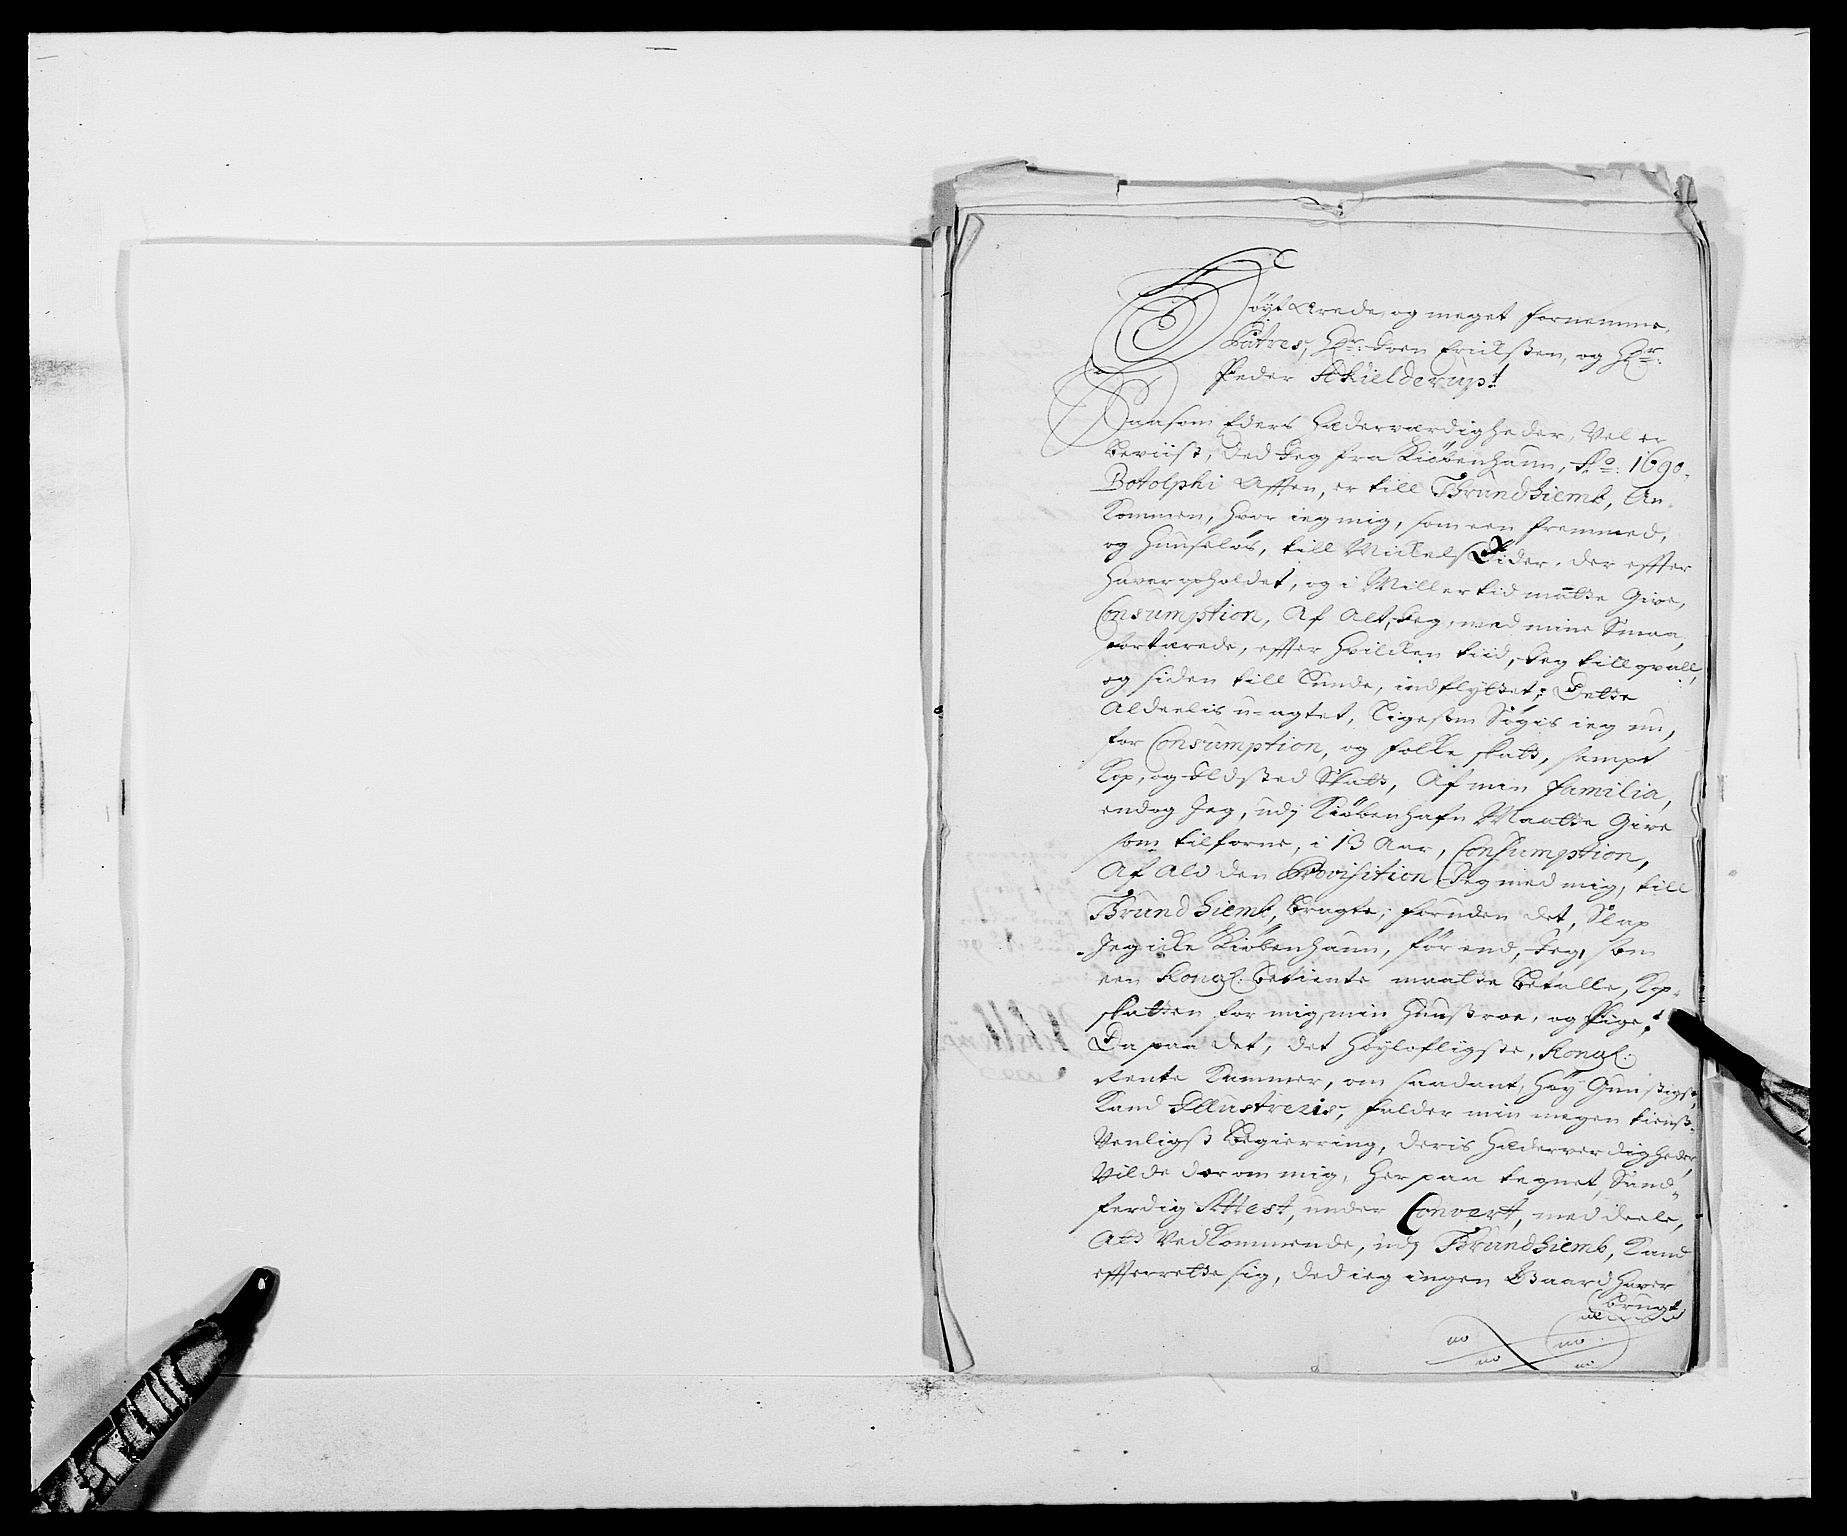 Höyt Ærede, og meget fornemme,
Patres, Hr: Joen Erichsen, og Hr:
Peder Schielderup!
Saasom Eders Hæderværdigheder, Vel er
beviist, ded Jeg fra Kiöbenhaun, Ao: 1690.
Botolphi Afften, er till Thrundhiemb, An-
kommen, hvor ieg mig, som een fremmed,
og huuselös, till Michels Tider, der effter
haver opholdet, og i Midlertid maatte Give,
Consumption, Af Alt, Jeg, med mine Smaa,
fortærede, effter hvilcken tiid, Jeg till
og siden till Lunde, indflyttet; Dette
Aldeelis u-agtet, ligesom Sögis ieg nu,
for Consumption, og folke skatt, sampt
Kop, og Ildsted Skatt, Af min familia,
endog Jeg, udj Kiöbenhafn Maatte Give
som tilforne, i 13 Aar, Consumption,
Af Ald den Provisition Jeg med mig, till
Thrundhiemb, bragte; foruden det, Slap
Jeg icke Kiöbenhaun, för end, Jeg, som
een Kongl: betiente maatte betalle, Kop-
skatten for mig, min Huustroe, og Pige;
Da paa det, det Höylofligste, Kongl:
Rente Kammer, om saadant, höy Gunstigst,
Kand Illustreris, falder min megen tienst-
Venligst begierring, deris Hæderverdigheder,
Vilde der om mig, her paa tegnet, Sand-
ferdig Attest, under Convert, meddeele,
Att Vedkommende, udj Thrundhiemb, Kand
efferrette sig, ded ieg ingen Gaard haver
brugt,